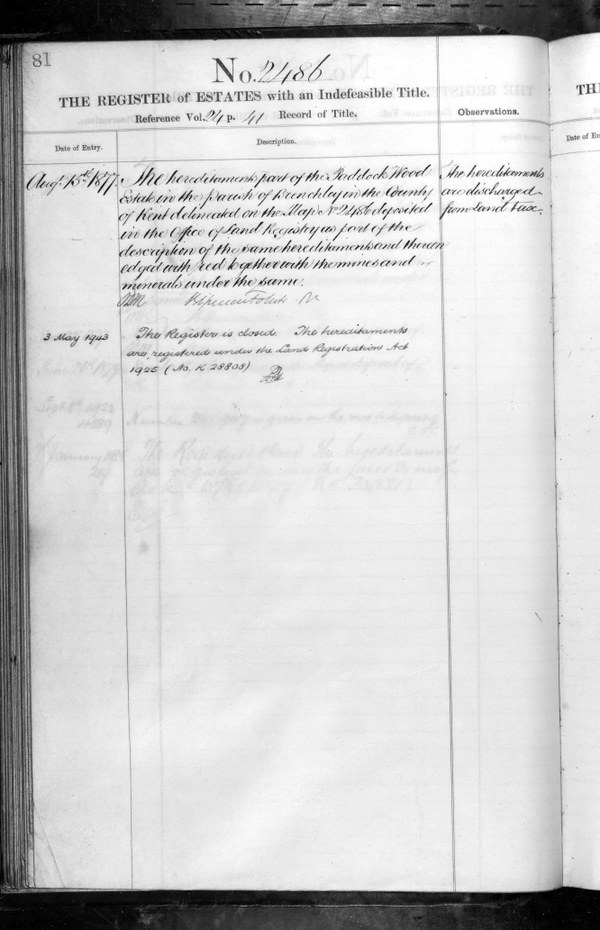 81
No. 2486
THE REGISTER of ESTATES with an Indefeasible Title.
Reference Vol. 24 p. 41 Record of Title.
Observations.
Date of Entry.
Description.
Augt. 13th 1877.
The hereditaments part of the Paddock Wood
Estate in the Parish of Brenchley in the County
of Kent delineated on the Map No 2486 deposited
in the Office of Land Registry as part of the
description of the same hereditaments and thereon
edged with red together with the mines and
minerals under the same.
The hereditaments
are discharged
from Land Tax.
3 May 1943
The Register is closed. The hereditaments
are registered under the Land Registration Act
1925 (No. K 28808)
TH
Date of En